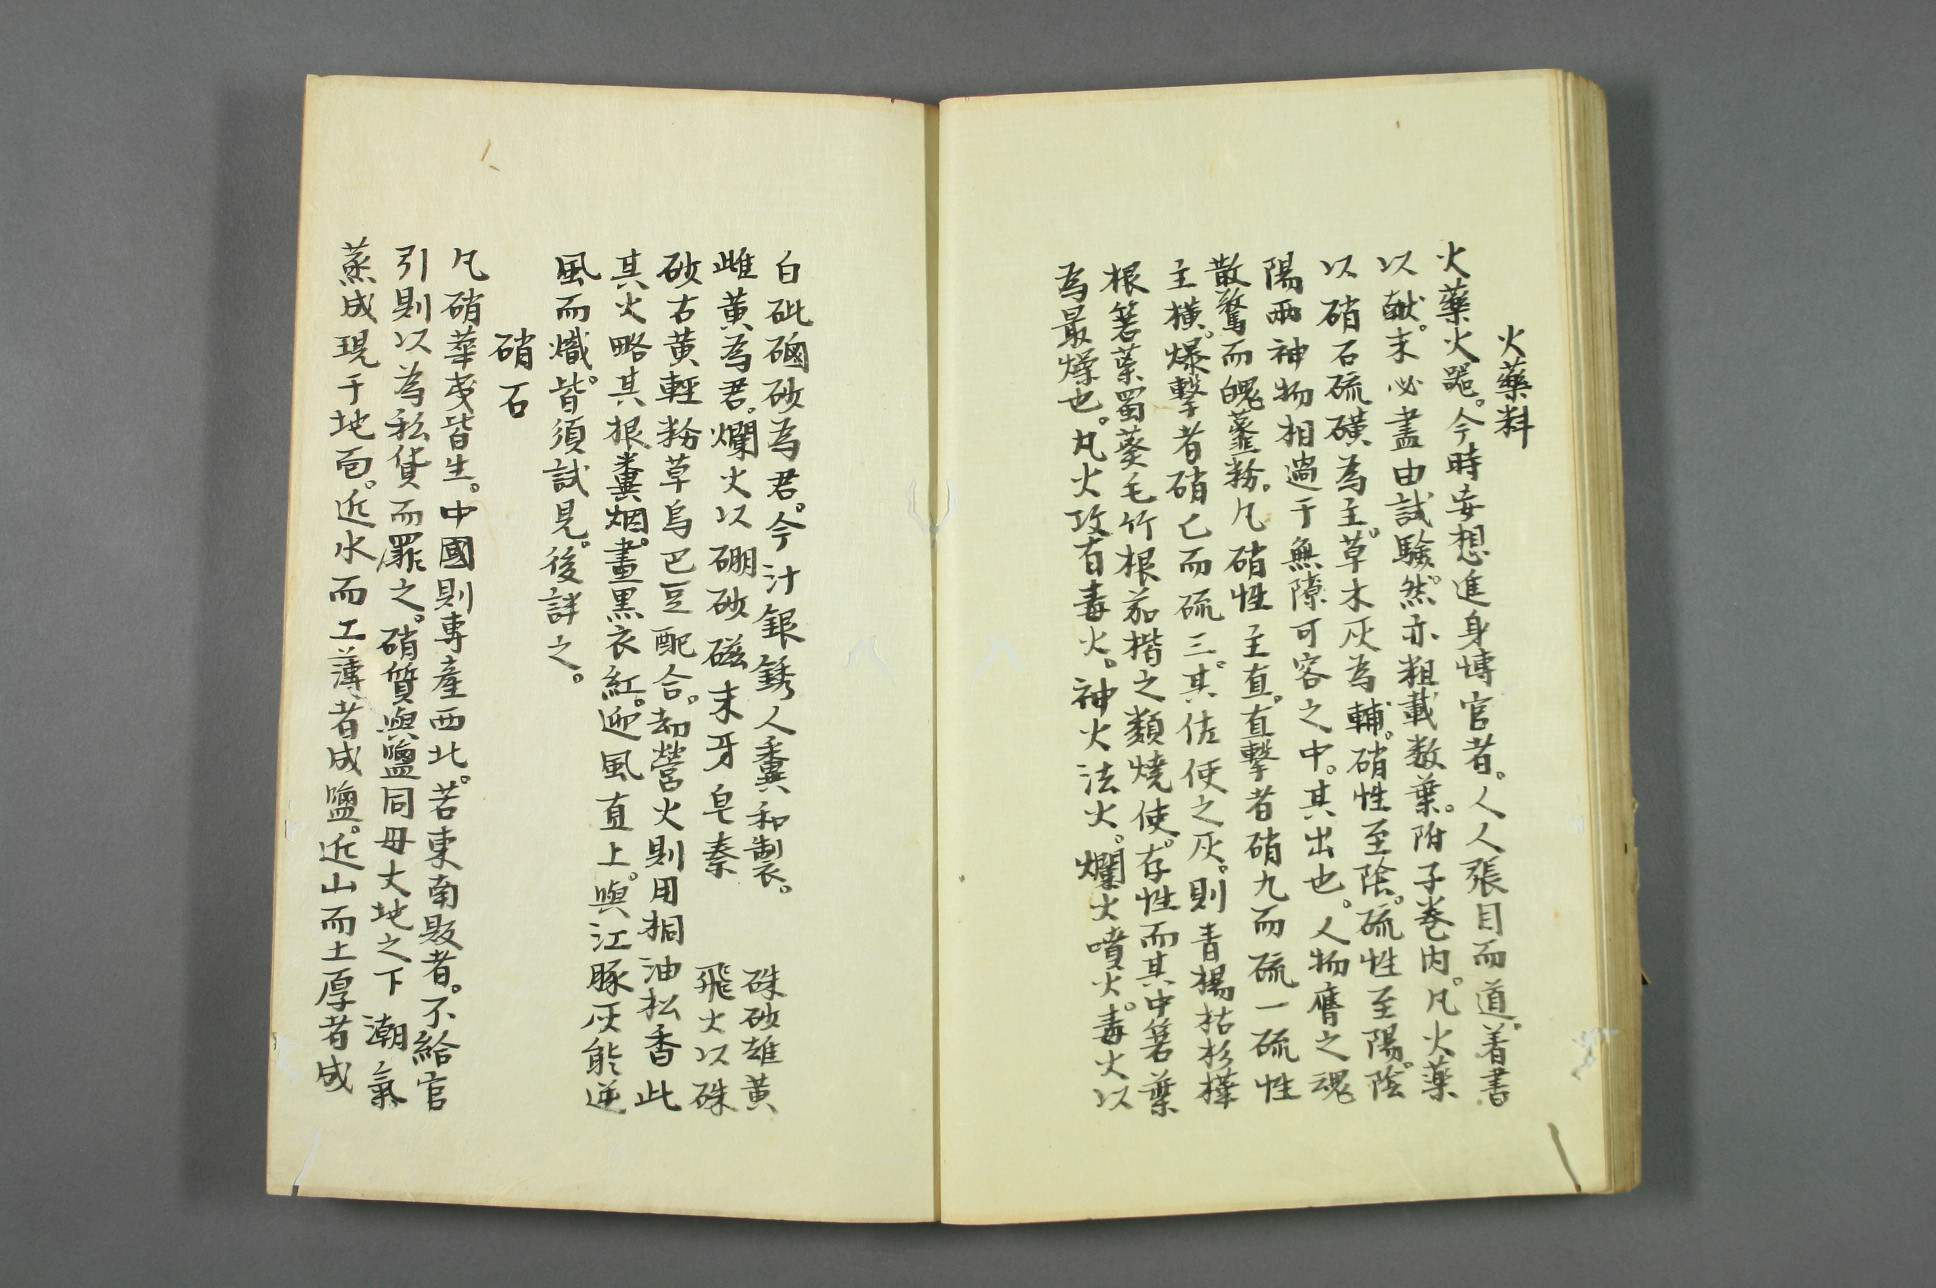 火藥料
火藥火器。今時妄想進身博官者。人人張目而道。着書
以献。未必盡由試驗。然亦粗載数葉。附子卷内。凡火藥
以硝石硫磺為主。草木灰為輔。硝性至陰。硫性至陽。陰
陽兩神物相遇于無隙可容之中。其出也。人物膺之魂
散驚而魄虀粉。凡硝性主直。直擊者硝九而硫一硫性
主横。爆擊者硝七而硫三。其佐使之灰。則青楊枯杉樺
根箬葉蜀葵毛竹根茄楷之類燒使。存性而其中箬葉
為最燥也。凡火攻有毒火。神火法火。爛火噴火。毒火以
白砒磠砂為君。今汁銀銹人糞和製。 硃砂雄黄
雌黄為君。爛火以硼砂磁末牙皂秦 飛火以硃
砂古黄輕粉草烏巴豆配合。劫營火則用桐油松香此
其火略其狠糞烟。晝黒衣紅。迎風直上。與江豚灰能逆
風而熾。皆須試見。後詳之。
硝石
凡硝華夷皆生。中國則專產西北。若東南販者。不給官
引則以為私貨而罪之。硝質與鹽同母丈地之下潮氣
蒸成現于地面。近水而工薄者成鹽。近山而土厚者成